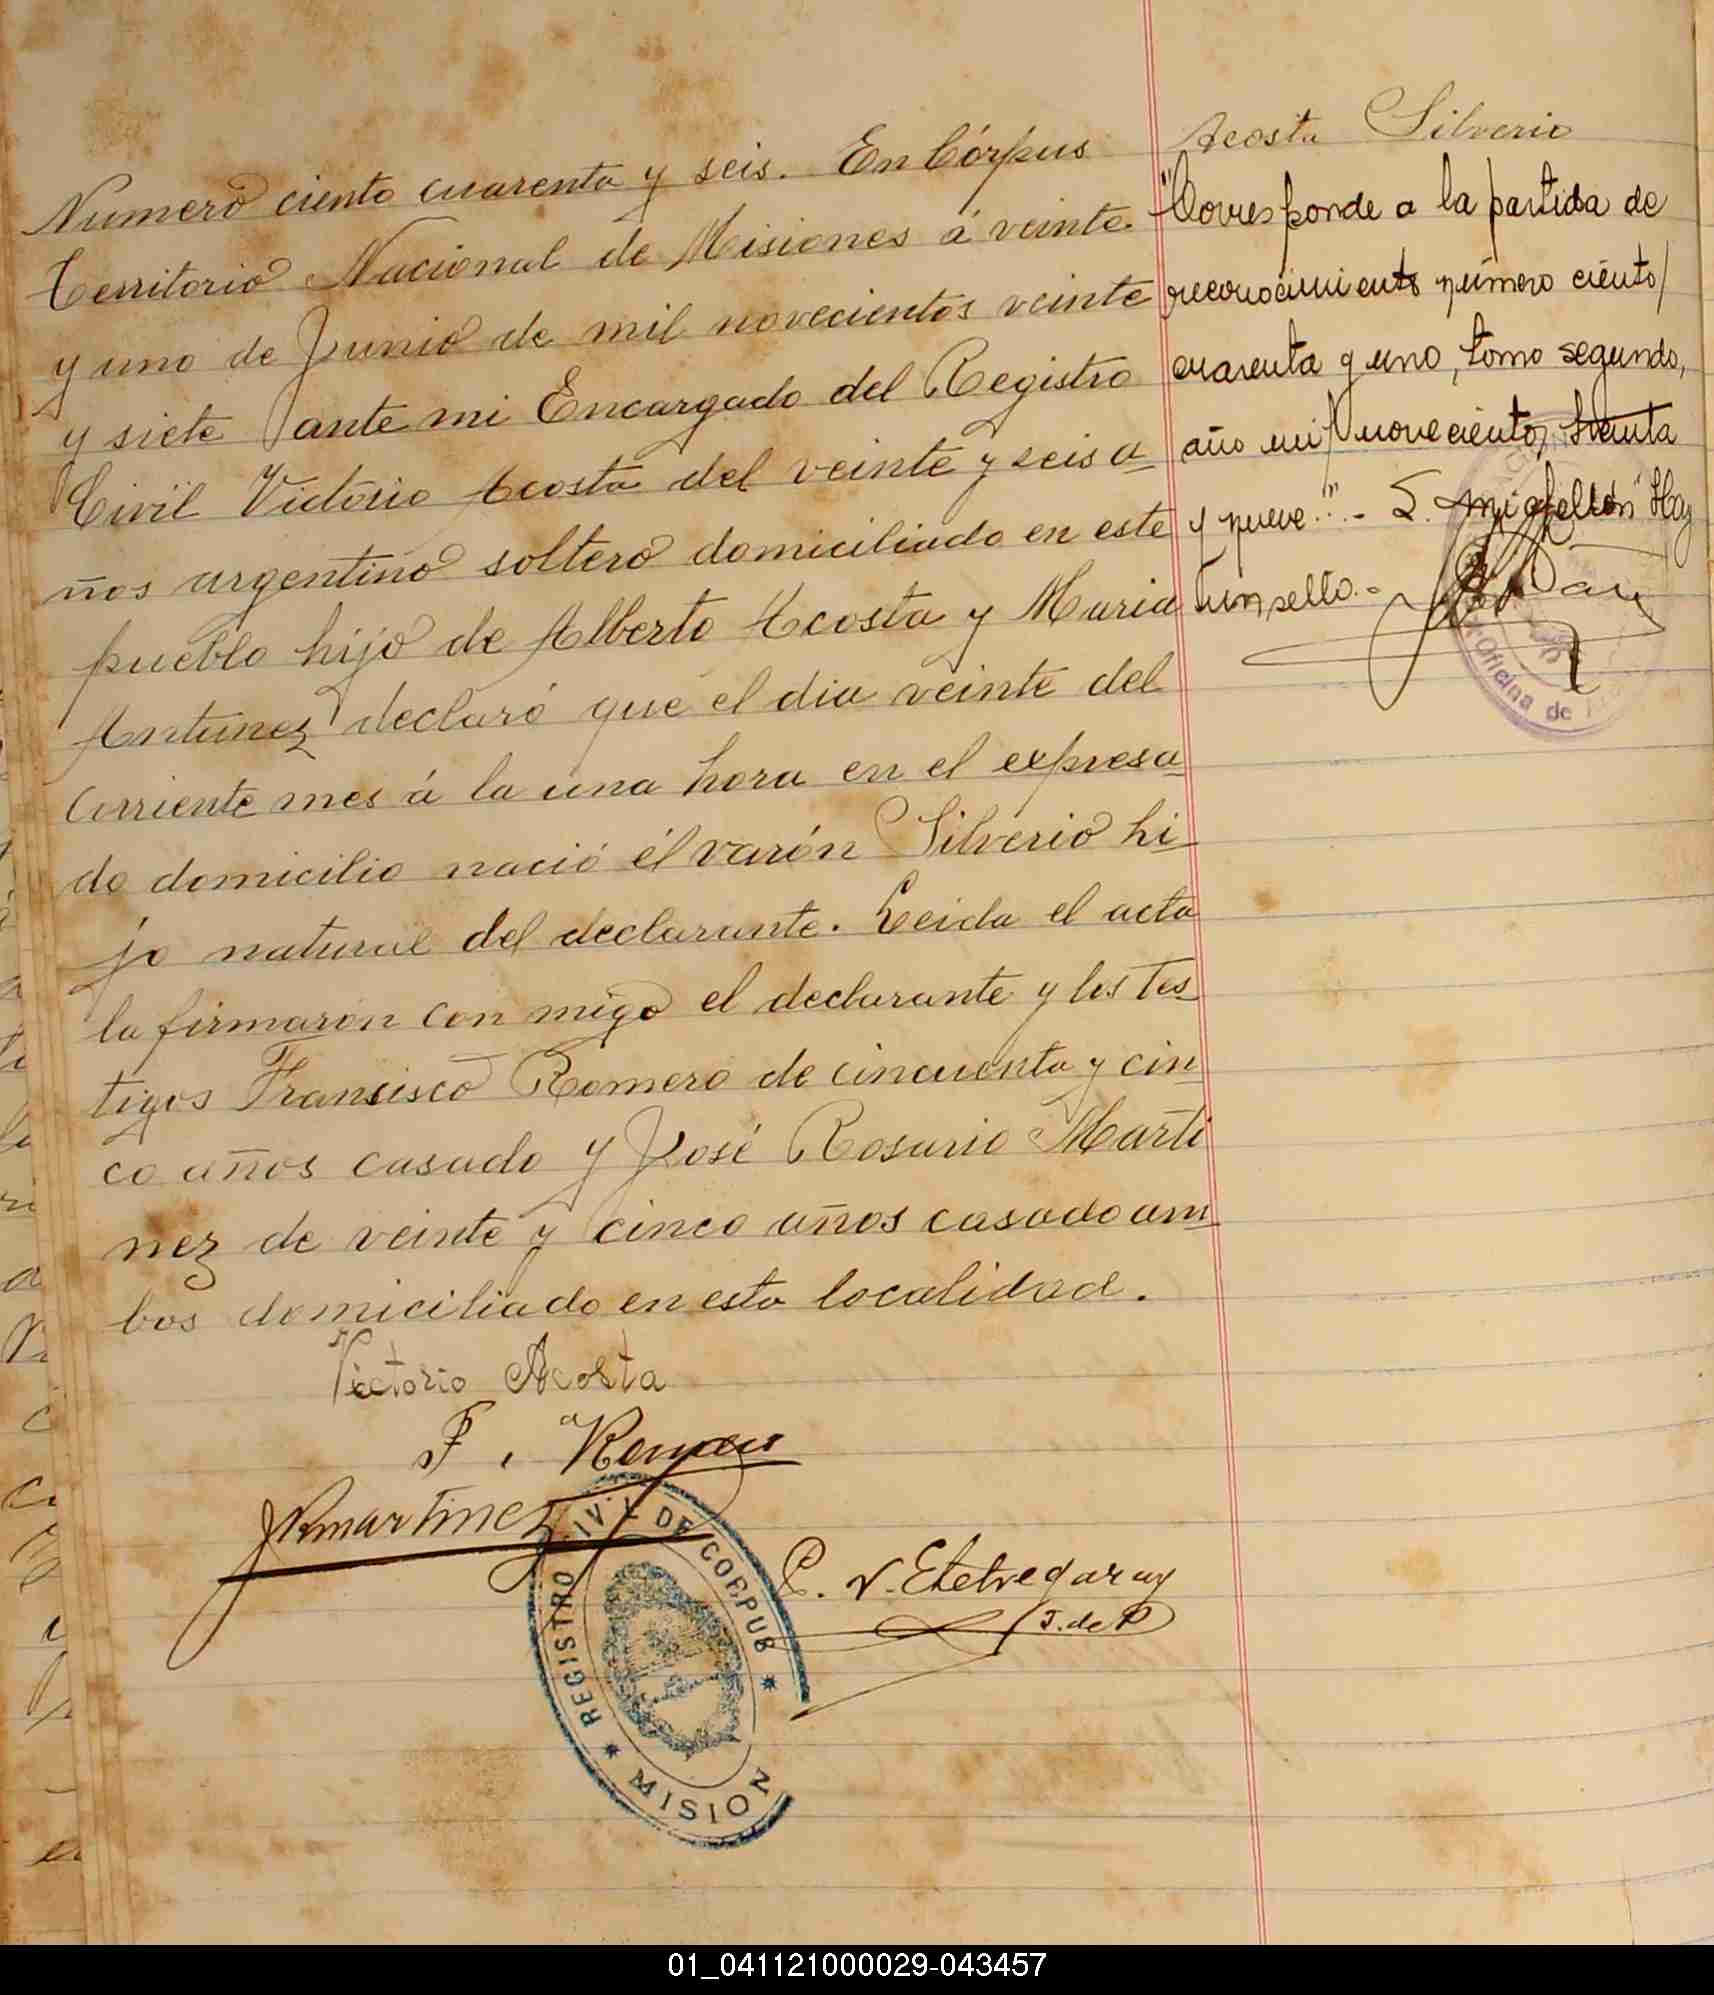 Numero ciento cuarenta y seis. En Córpus
Territorio Nacional de Misiones á veinte
y uno de Junio de mil novecientos veinte
y siete ante mi Encargado del Registro
Civil Victorio Acosta del veinte y seis a
ños argentino soltero domiciliado en este
pueblo hijo de Alberto Acosta y Maria
Antunez declaró que el dia veinte del
corriente mes á la una hora en el expresa
do domicilio nació él varón Silverio hi
jo natural del declarante. Leida el acta
la firmaron con migo el declarante y los tes
tigos Francisco Romero de cincuenta y cin
co años casado y José Rosario Marti
nez de veinte y cinco años casado am
bos domiciliado en esta localidad.
Victorio Acosta
F. Romero
JRmartinez
P. V. Etchegaray
J. de P
REGISTRO CIVIL DE CORPUS
MISION
Acosta Silverio
"Corresponde a la partida de
reconocimiento número ciento
cuarenta y uno, tomo segundo,
año mil novecientos treinta
y nueve". - Hay
un sello. -
Oficina de
01_041121000029-043457